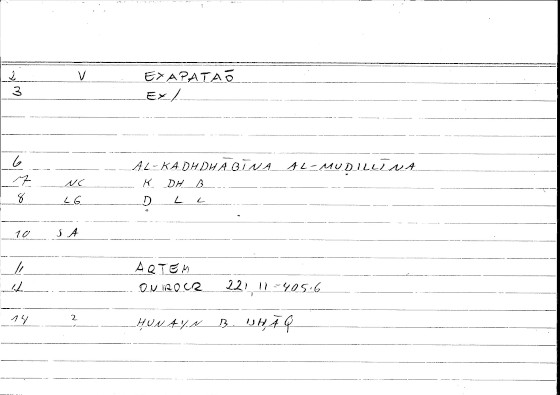 2 V EXAPATAŌ
3 EX/
6 AL-KADHDHĀBĪNA AL-MUḌILLĪNA
7 NC K DH B
8 LG Ḍ L L
10 SA
11 ARTEM
12 ONIROCR 221,11-405.6
14 2 ḤUNAYN B. ISḤĀQ